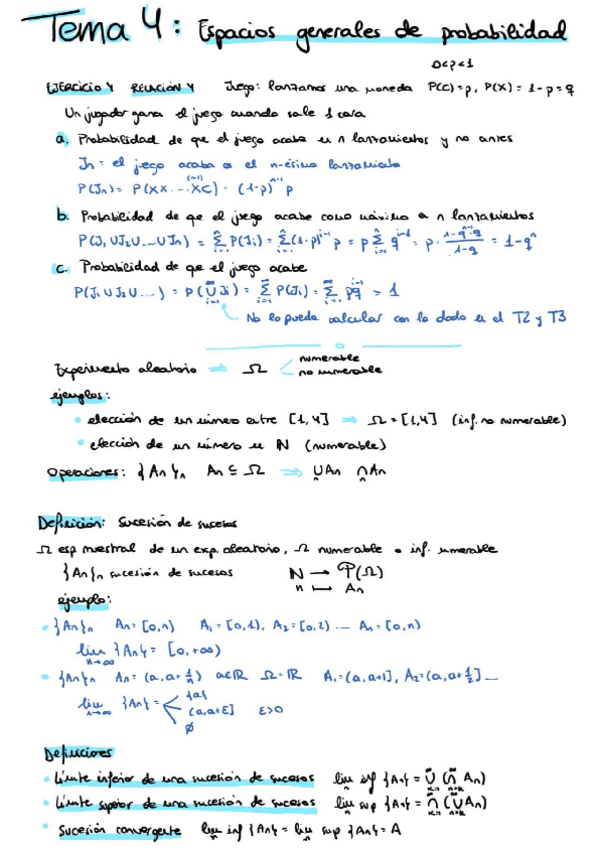 Tema 4: Espacios generales de probabilidad
0<p<1
EJERCICIO 4 RELACIÓN 4 Juego: lanzamos una moneda P(C)=p, P(X)=1-p=q
Un jugador gana el juego cuando sale 1 cara
a. Probabilidad de que el juego acabe en n lanzamientos y no antes
Jn = el juego acaba a el n-ésimo lanzamiento
P(Jn) = P(XX...XC) = (1-p)^{n-1} p
b. Probabilidad de que el juego acabe como máximo a n lanzamientos
P(J₁∪J₂∪...∪Jn) = Σ_{i=1}^{n} P(Ji) = Σ_{i=1}^{n} (1-p)^{i-1} p = p Σ_{i=1}^{n} q^{i-1} = p· (1-q^n·q)/(1-q) = 1-q^n
c. Probabilidad de que el juego acabe
P(J₁∪J₂∪...) = P(∪_{i=1}^{∞} Ji) = Σ_{i=1}^{∞} P(Ji) = Σ_{i=1}^{∞} pq^{i-1} = 1
No lo puedo calcular con lo dado en el T2 y T3
Experimento aleatorio ⇒ Ω < numerable
no numerable
ejemplos:
• elección de un número entre [1,4] → Ω = [1,4] (inf. no numerable)
• elección de un número en N (numerable)
Operaciones: {An}n An ⊆ Ω ⇒ ∪An ∩An
Definición: Sucesión de sucesos
Ω esp muestral de un exp. aleatorio, Ω numerable o inf. numerable
{An}n sucesión de sucesos N → P(Ω)
n ↦ An
ejemplo:
• {An}n An = [0,n) A₁ = [0,1), A₂ = [0,2) ... An = [0,n)
lim_{n→∞} {An} = [0,+∞)
• {An}n An = (a, a+1/n) a∈R Ω = R A₁ = (a,a+1], A₂ = (a,a+1/2] ...
lim_{n→∞} {An} = < {a}
(a,a+ε] ε>0
∅
Definiciones
• Límite inferior de una sucesión de sucesos lim inf {An} = ∪_{k=1}^{∞} (∩_{n=k}^{∞} An)
• Límite superior de una sucesión de sucesos lim sup {An} = ∩_{k=1}^{∞} (∪_{n=k}^{∞} An)
• Sucesión convergente lim inf {An} = lim sup {An} = A